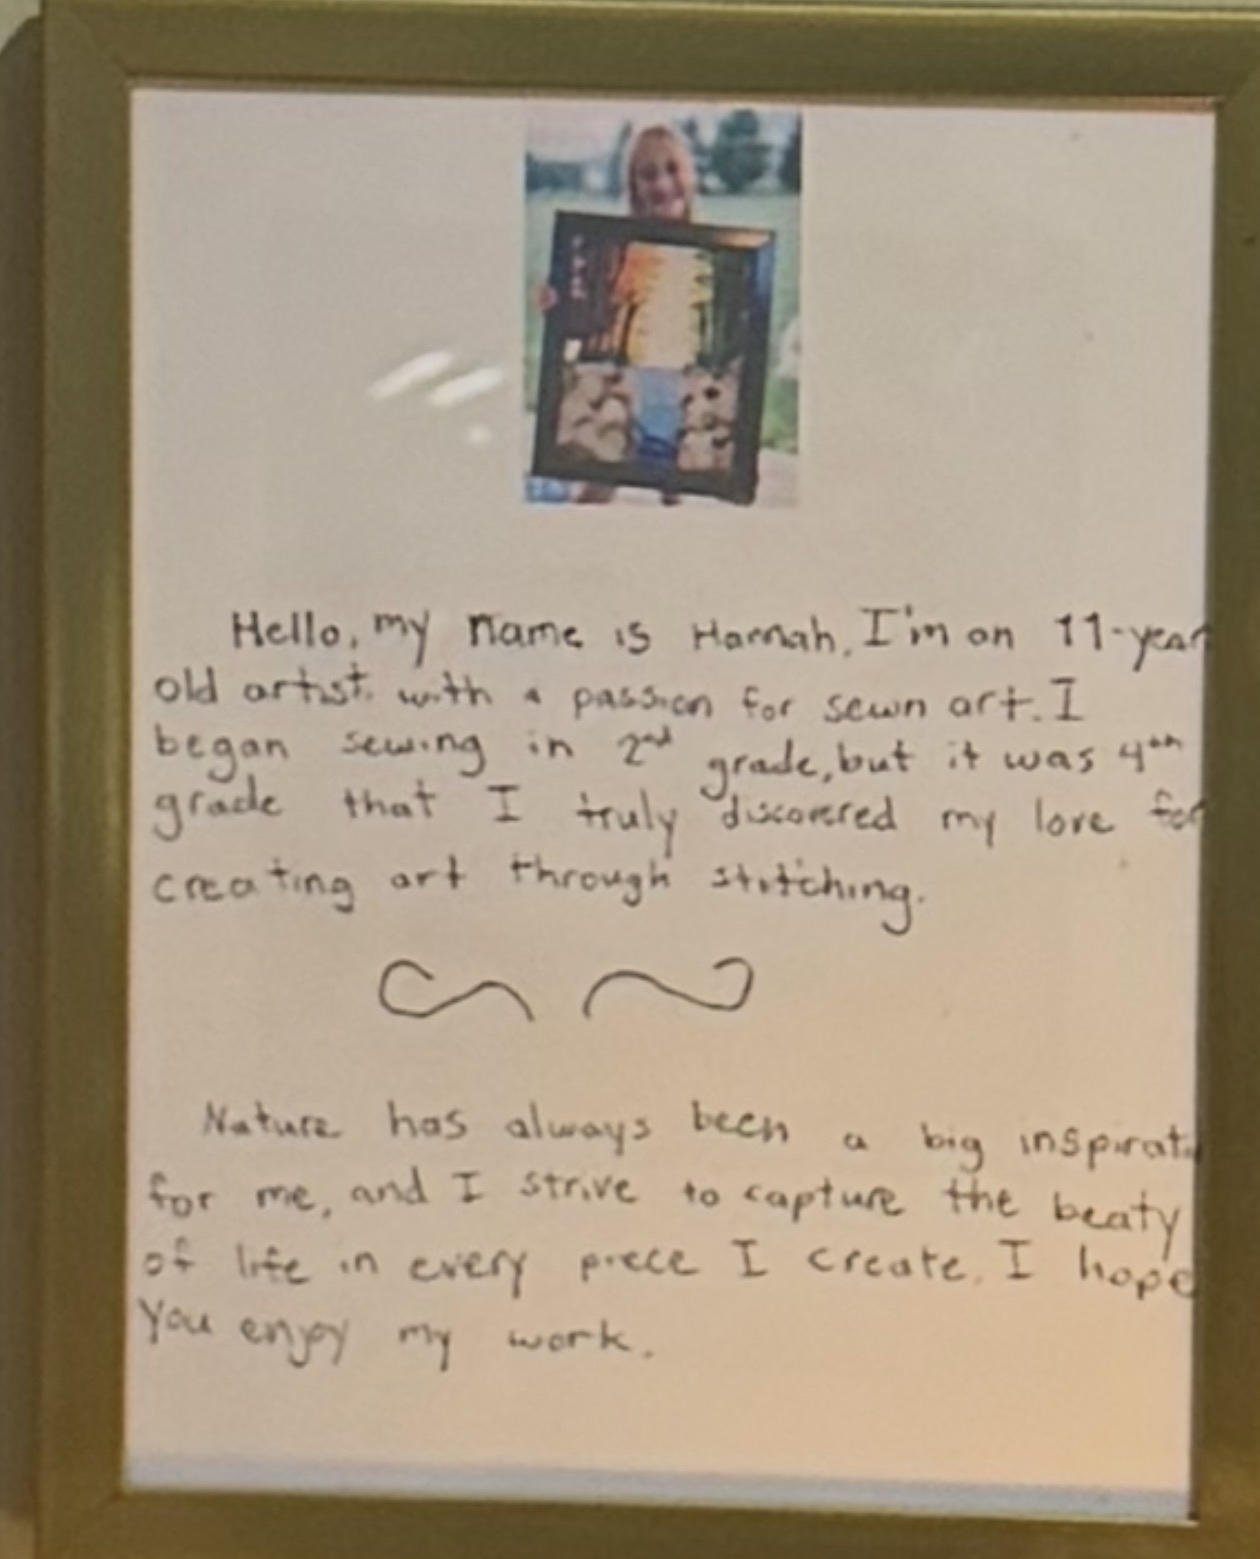 Hello, my name is Hannah. I'm an 11-year
old artist with a passion for sewn art. I
began sewing in 2nd grade, but it was 4th
grade that I truly discovered my love for
creating art through stitching.
Nature has always been a big inspirati
for me, and I strive to capture the beaty
of life in every piece I create. I hope
you enjoy my work.